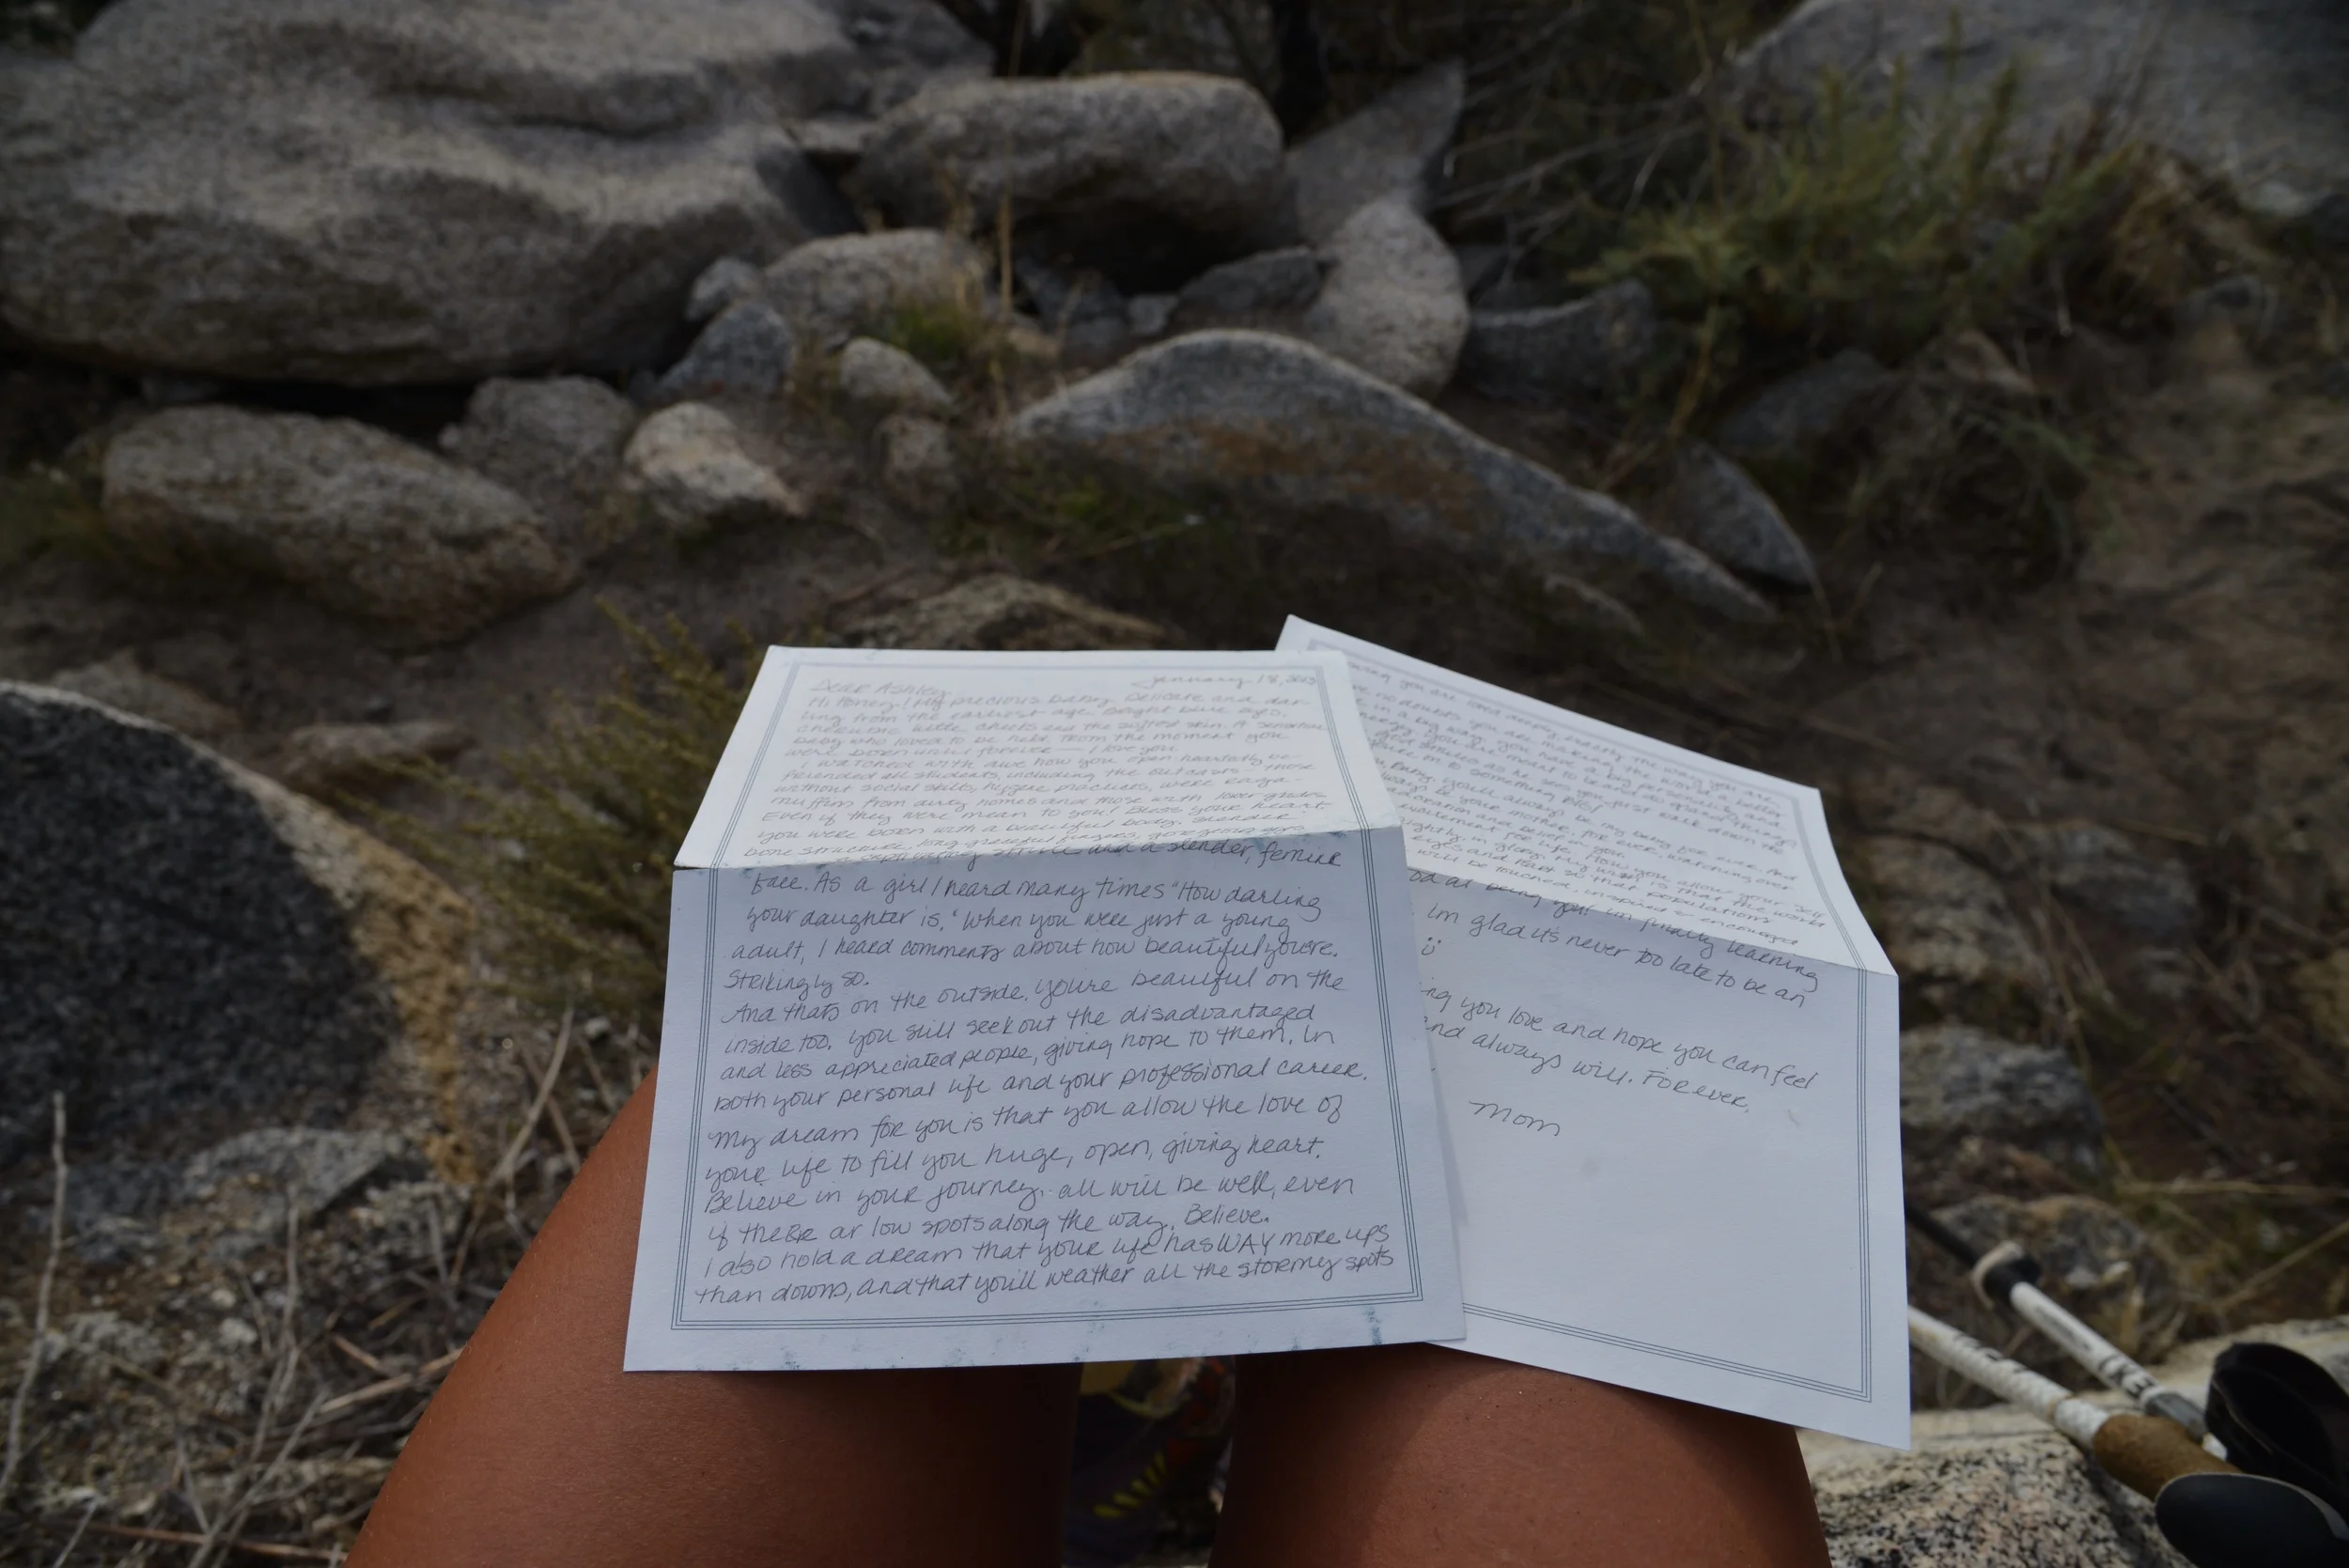 Dear Ashley, January 18, 2013
Hi Honey! My precious baby. Delicate and dar-
ling from the earliest age. Bright blue eyes,
cherubic little cheeks and the softest skin. A sensitive
baby who loved to be held. From the moment you
were born until forever — I love you.
I watched with awe how you open heartedly be
friended all students, including the outcasts - those
without social skills, hygiene practices, were raga-
muffins from dirty homes and those with lower grades.
Even if they were mean to you! Bless your heart
you were born with a beautiful body, slender
bone structure, long graceful fingers, gorgeous eyes,
a captivating smile and a slender, feminine
face. As a girl I heard many times "How darling
your daughter is." When you were just a young
adult, I heard comments about how beautiful you're.
Strikingly so.
And thats on the outside. You're beautiful on the
inside too. You still seek out the disadvantaged
and less appreciated people, giving hope to them. In
both your personal life and your professional career.
My dream for you is that you allow the love of
your life to fill you huge, open, giving heart.
Believe in your journey. All will be well, even
if there ar low spots along the way. Believe.
I also hold a dream that your life has WAY more ups
than downs, and that you'll weather all the stormy spots
you are loved deeply, exactly the way you are.
no doubts you are making the world a better
in a big way. You have a big personality and
energy. You are meant to be and do grand things.
God smiles as he sees you just walk down the
m to something BIG!
Baby, you'll always be my baby for ever. And
always be your mother, for ever, watching over
adoration and belief in you.
excitement for life. How you allow your self
brightly, in glory. My wish is that the world
eyes and heart so that populations
will be touched, inspired & encouraged
od at being you! I'm finally learning
. Im glad it's never too late to be an
ing you love and hope you can feel
nd always will. Forever,
Mom